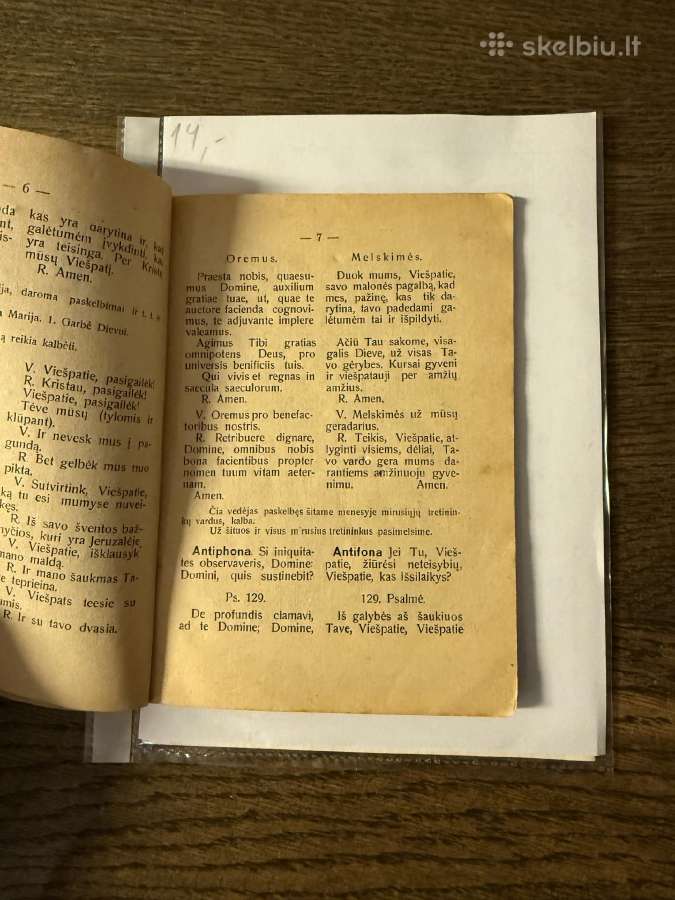 skelbiu.lt
14,-
— 6 —
kas yra darytina ir, kad
galėtumėm įvykdinti, kas
yra teisinga. Per Kristų
mūsų Viešpatį.
R. Amen.
daroma paskelbimai ir t. t.
Marija. 1. Garbė Dievui.
reikia kalbėti.
V. Viešpatie, pasigailėk!
R. Kristau, pasigailėk!
Viešpatie, pasigailėk!
Tėve mūsų (tylomis ir
klūpant).
V. Ir nevesk mus į pa-
gundą.
R. Bet gelbėk mus nuo
pikta.
V. Sutvirtink, Viešpatie,
ką tu esi mumyse nuvei-
kęs.
R. Iš savo šventos baž-
nyčios, kuri yra Jeruzalėje.
V. Viešpatie, išklausyk
mano maldą.
R. Ir mano šauksmas Ta-
ve teprieina.
V. Viešpats teesie su
jumis.
R. Ir su tavo dvasia.
— 7 —
Oremus.
Praesta nobis, quaesu-
mus Domine, auxilium
gratiae tuae, ut, quae te
auctore facienda cognovi-
mus, te adjuvante implere
valeamus.
Agimus Tibi gratias
omnipotens Deus, pro
universis beneficiis tuis.
Qui vivis et regnas in
saecula saeculorum.
R. Amen.
V. Oremus pro benefac-
toribus nostris.
R. Retribuere dignare,
Domine, omnibus nobis
bona facientibus propter
nomen tuum vitam aeter-
nam.
Amen.
Melskimės.
Duok mums, Viešpatie,
savo malonės pagalbą, kad
mes, pažinę, kas tik da-
rytina, tavo padedami ga-
lėtumėm tai ir išpildyti.
Ačiū Tau sakome, visa-
galis Dieve, už visas Ta-
vo gėrybes. Kursai gyveni
ir viešpatauji per amžių
amžius.
R. Amen.
V. Melskimės už mūsų
geradarius.
R. Teikis, Viešpatie, at-
lyginti visiems, dėliai, Ta-
vo vardo gera mums da-
rantiems amžinuoju gyve-
nimu. Amen.
Čia vedėjas paskelbęs šitame menesyje mirusiųjų tretinin-
kų vardus, kalba.
Už šituos ir visus mirusius tretininkus pasimelsime.
Antiphona. Si iniquita-
tes observaveris, Domine:
Domini, quis sustinebit?
Ps. 129.
De profundis clamavi,
ad te Domine; Domine,
Antifona Jei Tu, Vieš-
patie, žiūrėsi neteisybių,
Viešpatie, kas išsilaikys?
129. Psalmė.
Iš galybės aš šaukiuos
Tave, Viešpatie, Viešpatie